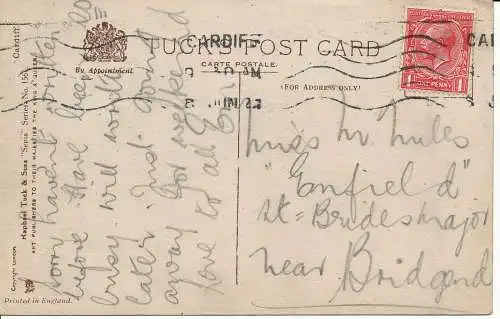 TUCK'S POST CARD
CARTE POSTALE.
By Appointment.
(FOR ADDRESS ONLY)
CARDIFF
CAR
JUN
1 PENNY 1
Cardiff
Raphael Tuck & Sons "Sepia" Series No.
ART PUBLISHERS TO THEIR MAJESTIES THE KING & QUEEN.
Copyright London
Printed in England.
Sorry haven't written
before Have been so
busy. Will write
later. Just going
away for weekend
Love to all
Miss M. Miles
"Enfield"
St = Brides major
near Bridgend